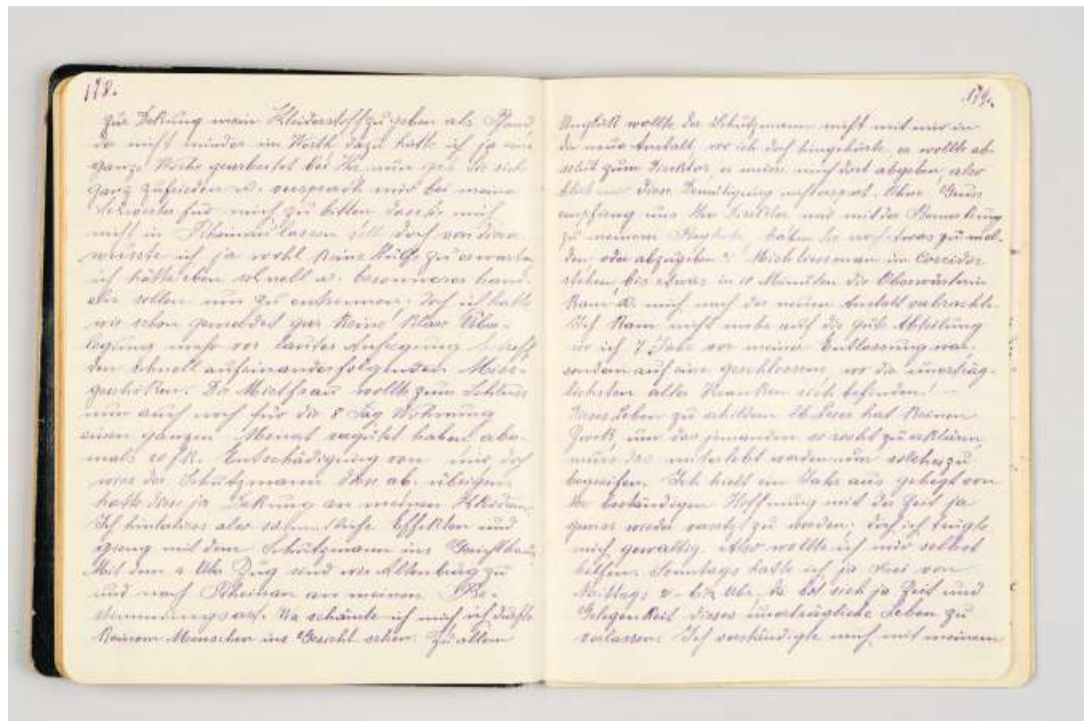 178.
zur Dekung mein Kleiderstoff zu geben als Pfand,
da nicht minder im Werth dazu hatte ich ja eine
ganze Woche gearbeitet bei Ihr, nun gab sie sich
ganz zufrieden u. versprach mir bei meine
Schwester für mich zu bitten dass sie mich
nicht in Rheinau lassen soll doch von dieser
wusste ich ja wohl keine Hülfe zu erwarten
ich hätte eben schnell u. besonnener hand-
eln sollen um zu entrinnen. Doch ich hatte
wie schon gemeldet gar keine klare Über-
legung mehr vor lauter Aufregung betreff
den schnell aufeinanderfolgenden Miss-
geschicken. Die Mietfrau wollte zum Schluss
nun auch noch für die 8 Tag Wohnung
einen ganzen Monat vergütet haben, aber-
mals 20 fr. Entschädigung von mir doch
wies der Schutzmann diese ab. übrigens
hatte diese ja Dekung an meinen Kleidern.
Ich hinterliess also sämmtliche Effekten und
gieng mit dem Schutzmann ins Gerichthaus
Mit dem 2 Uhr Zug sind wir Altenburg zu
und nach Rheinau an meinen Be-
stimmungsort. Da schämte ich mich ich durfte
keinem Menschen ins Gesicht sehen. Zu allem
179.
Unglück wollte der Schutzmann nicht mit mir in
die neue Anstalt, wo ich doch hingehörte, er wollte ab-
solut zum Direktor, er müsse mich dort abgeben, also
blieb mir diese Demütigung nicht erspart. Ohne Gruss
empfieng uns Herr Direktor und mit der Bemerkung
zu meinem Begleiter, haben Sie noch etwas zu mel-
den oder abzugeben? Mich liess man im Corridor
stehen, bis etwas in 10 Minuten die Oberwärterin
kam u. mich nach der neuen Anstalt verbrachte.
Ich kam nicht mehr auf die gute Abteilung
wo ich 7 Jahr vor meiner Entlassung war,
sondern auf eine geschlossene wo die unerträg-
lichsten aller Kranken sich befinden! —
Dieses Leben zu schildern lb. Leser hat keinen
Zweck, um das jemanden so recht zu erklären
muss das miterlebt werden um solches zu
begreifen. Ich hielt ein Jahr aus gehegt von
der beständigen Hoffnung mit der Zeit ja
gewiss wieder versetzt zu werden. doch ich teuschte
mich gewaltig. Also wollte ich mir selbst
helfen. Sonntags hatte ich ja frei von
Mittags Uhr, da bot sich ja Zeit und
Gelegenheit dieses unerträgliche Leben zu
verlassen. Ich verständigte mich mit meinem